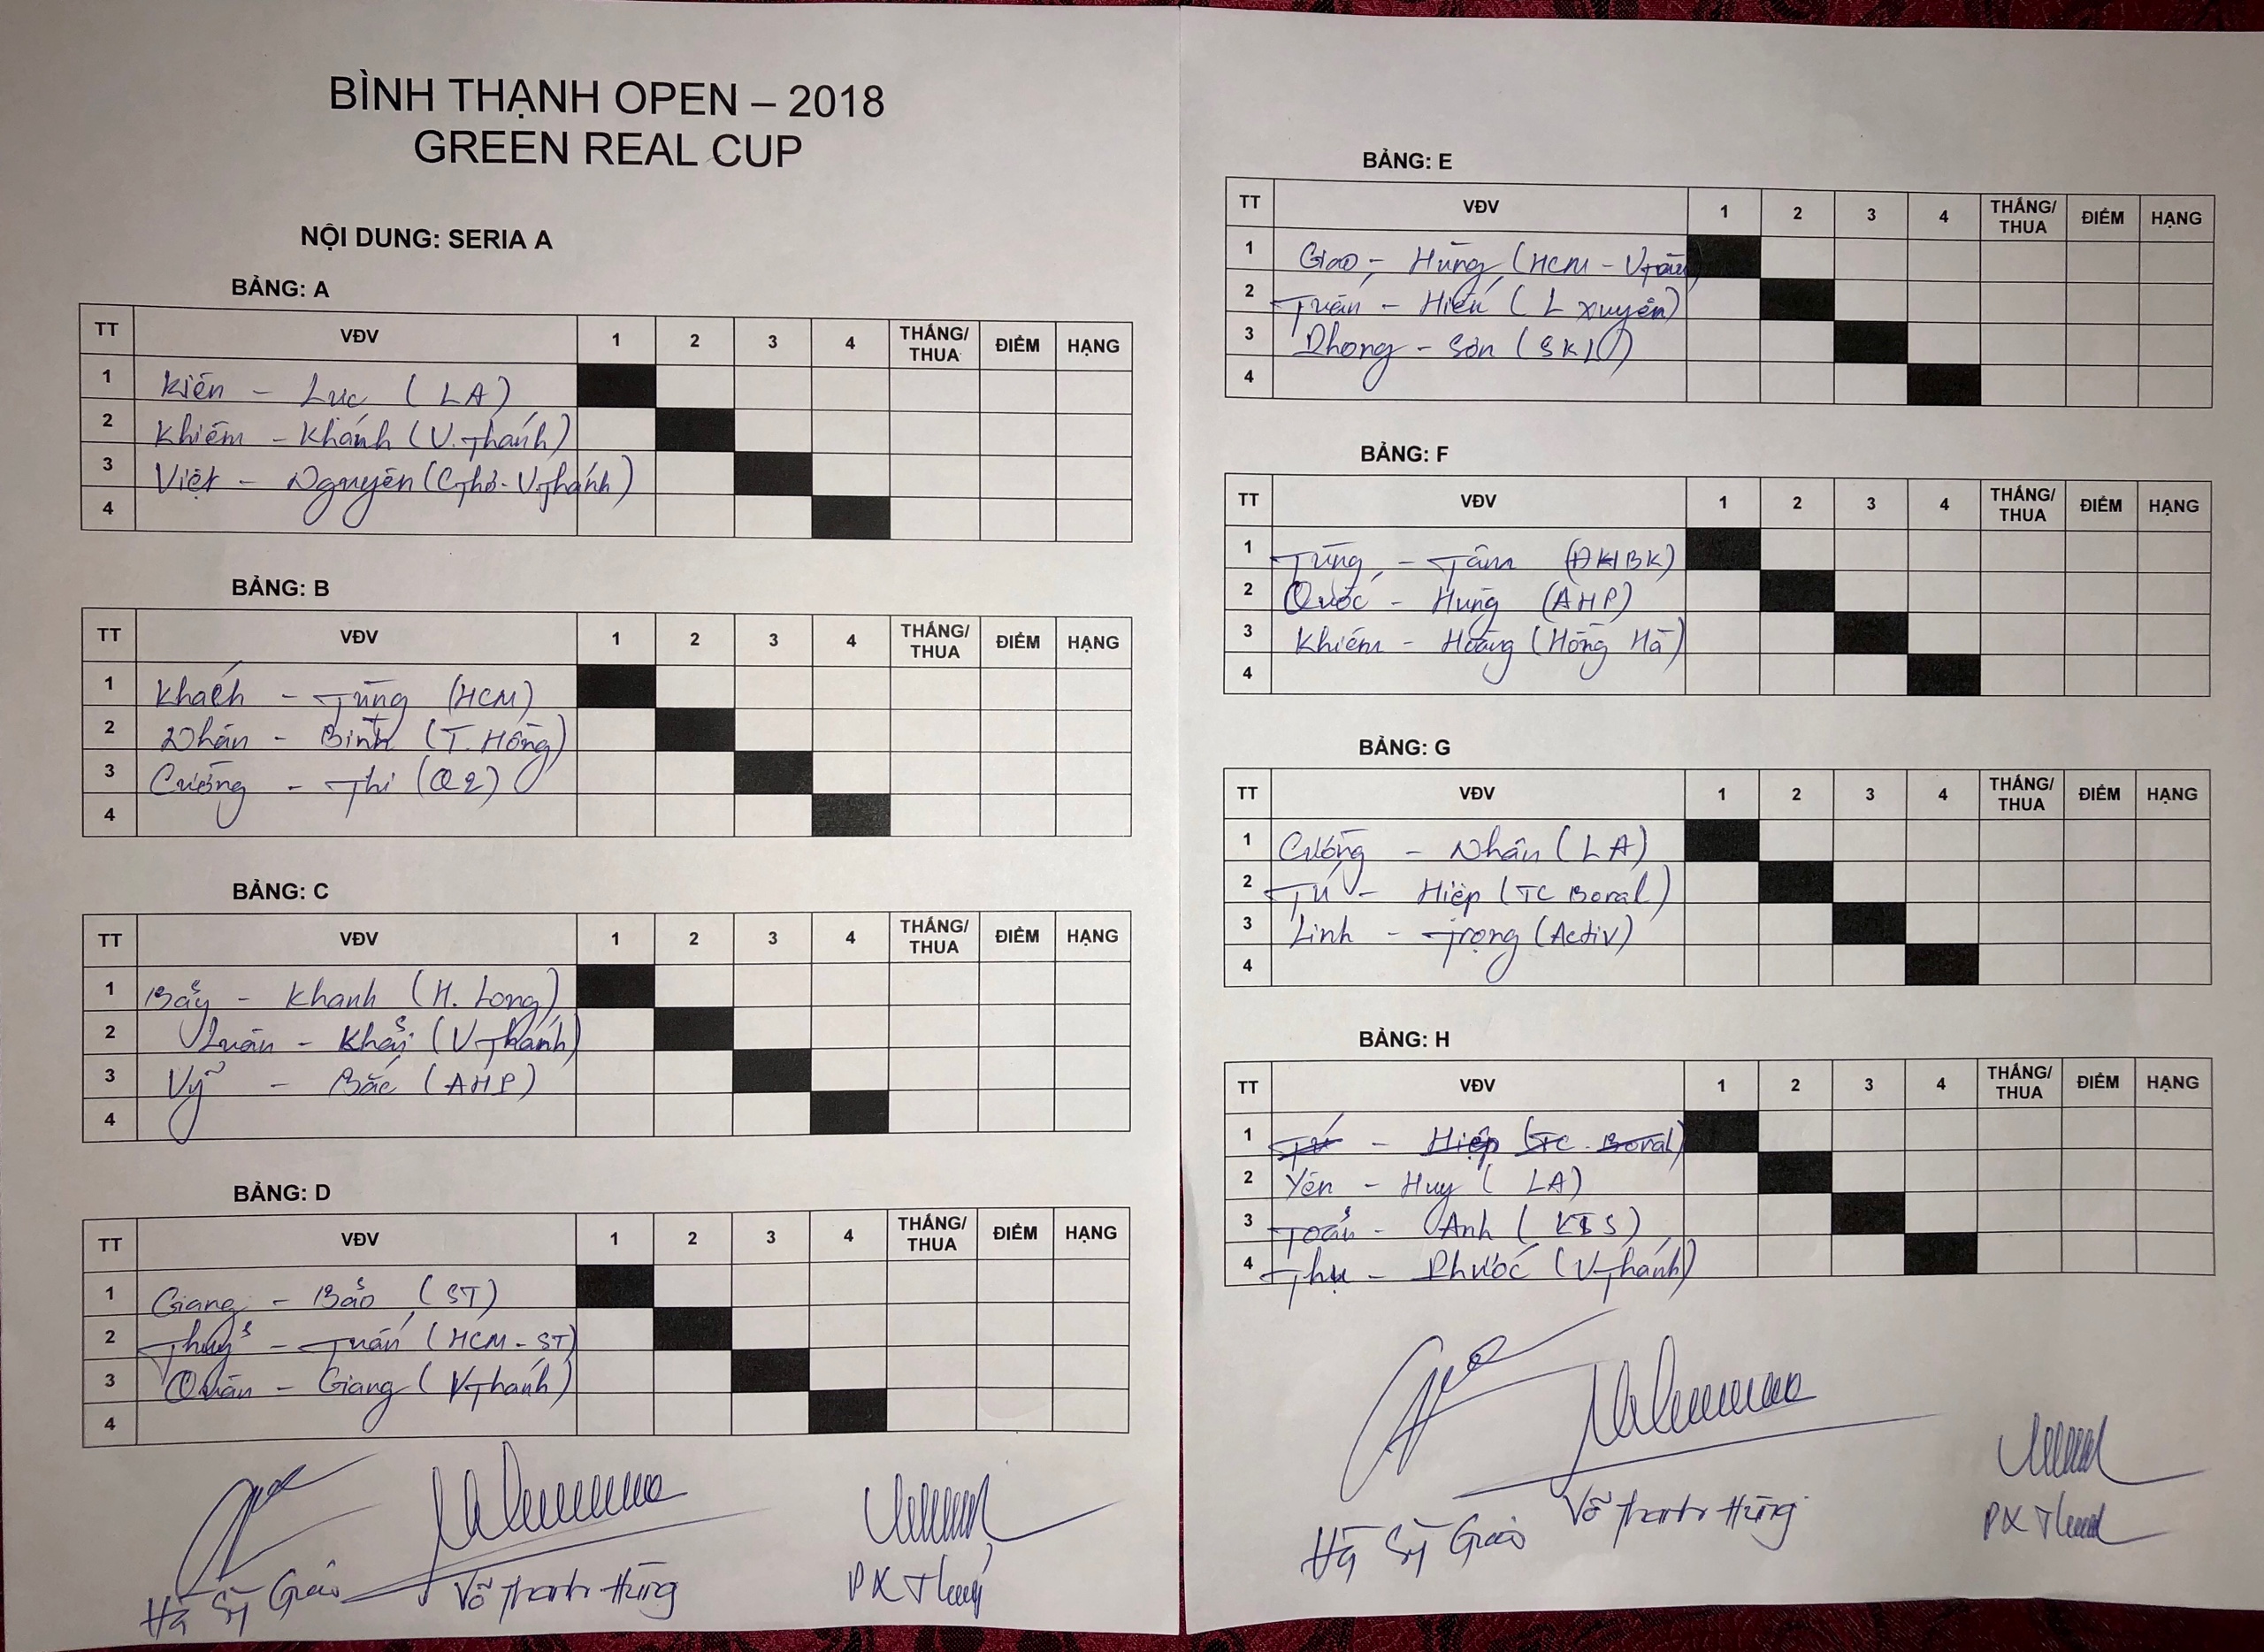 BÌNH THẠNH OPEN – 2018
GREEN REAL CUP
NỘI DUNG: SERIA A
BẢNG: A
TT VĐV 1 2 3 4 THẮNG/THUA ĐIỂM HẠNG
1 Kiên - Lực (LA)
2 Khiêm - Khánh (V.Thánh)
3 Việt - Nguyên (CThơ-VThánh)
4
BẢNG: B
TT VĐV 1 2 3 4 THẮNG/THUA ĐIỂM HẠNG
1 Khách - Tùng (HCM)
2 Nhân - Bình (T. Hồng)
3 Cường - Thi (Q2)
4
BẢNG: C
TT VĐV 1 2 3 4 THẮNG/THUA ĐIỂM HẠNG
1 Bảy - Khanh (H. Long)
2 Luân - Khải (VThánh)
3 Vỹ - Bắc (AHP)
4
BẢNG: D
TT VĐV 1 2 3 4 THẮNG/THUA ĐIỂM HẠNG
1 Giang - Bảo (ST)
2 Thuỷ - Tuấn (HCM-ST)
3 Quân - Giang (VThánh)
4
Hà Sỹ Giáo Võ Thanh Hùng PX
BẢNG: E
TT VĐV 1 2 3 4 THẮNG/THUA ĐIỂM HẠNG
1 Giao - Hùng (HCM - VTàu
2 Tuấn - Hiếu (L Xuyên)
3 Phong - Sơn
4
BẢNG: F
TT VĐV 1 2 3 4 THẮNG/THUA ĐIỂM HẠNG
1 Tùng - Tâm (ĐHBK)
2 Quốc - Hưng (AHP)
3 Khiêm - Hoàng (Hồng Hà)
4
BẢNG: G
TT VĐV 1 2 3 4 THẮNG/THUA ĐIỂM HẠNG
1 Cường - Nhân (LA)
2 Tú - Hiệp (TC Boral)
3 Linh - Trọng (Activ)
4
BẢNG: H
TT VĐV 1 2 3 4 THẮNG/THUA ĐIỂM HẠNG
1 Tú - Hiệp (TC. Boral)
2 Yên - Huy (LA)
3 Toản - Anh
4 Thụ - Phước (VThánh)
Hà Sỹ Giáo Võ Thanh Hùng PX